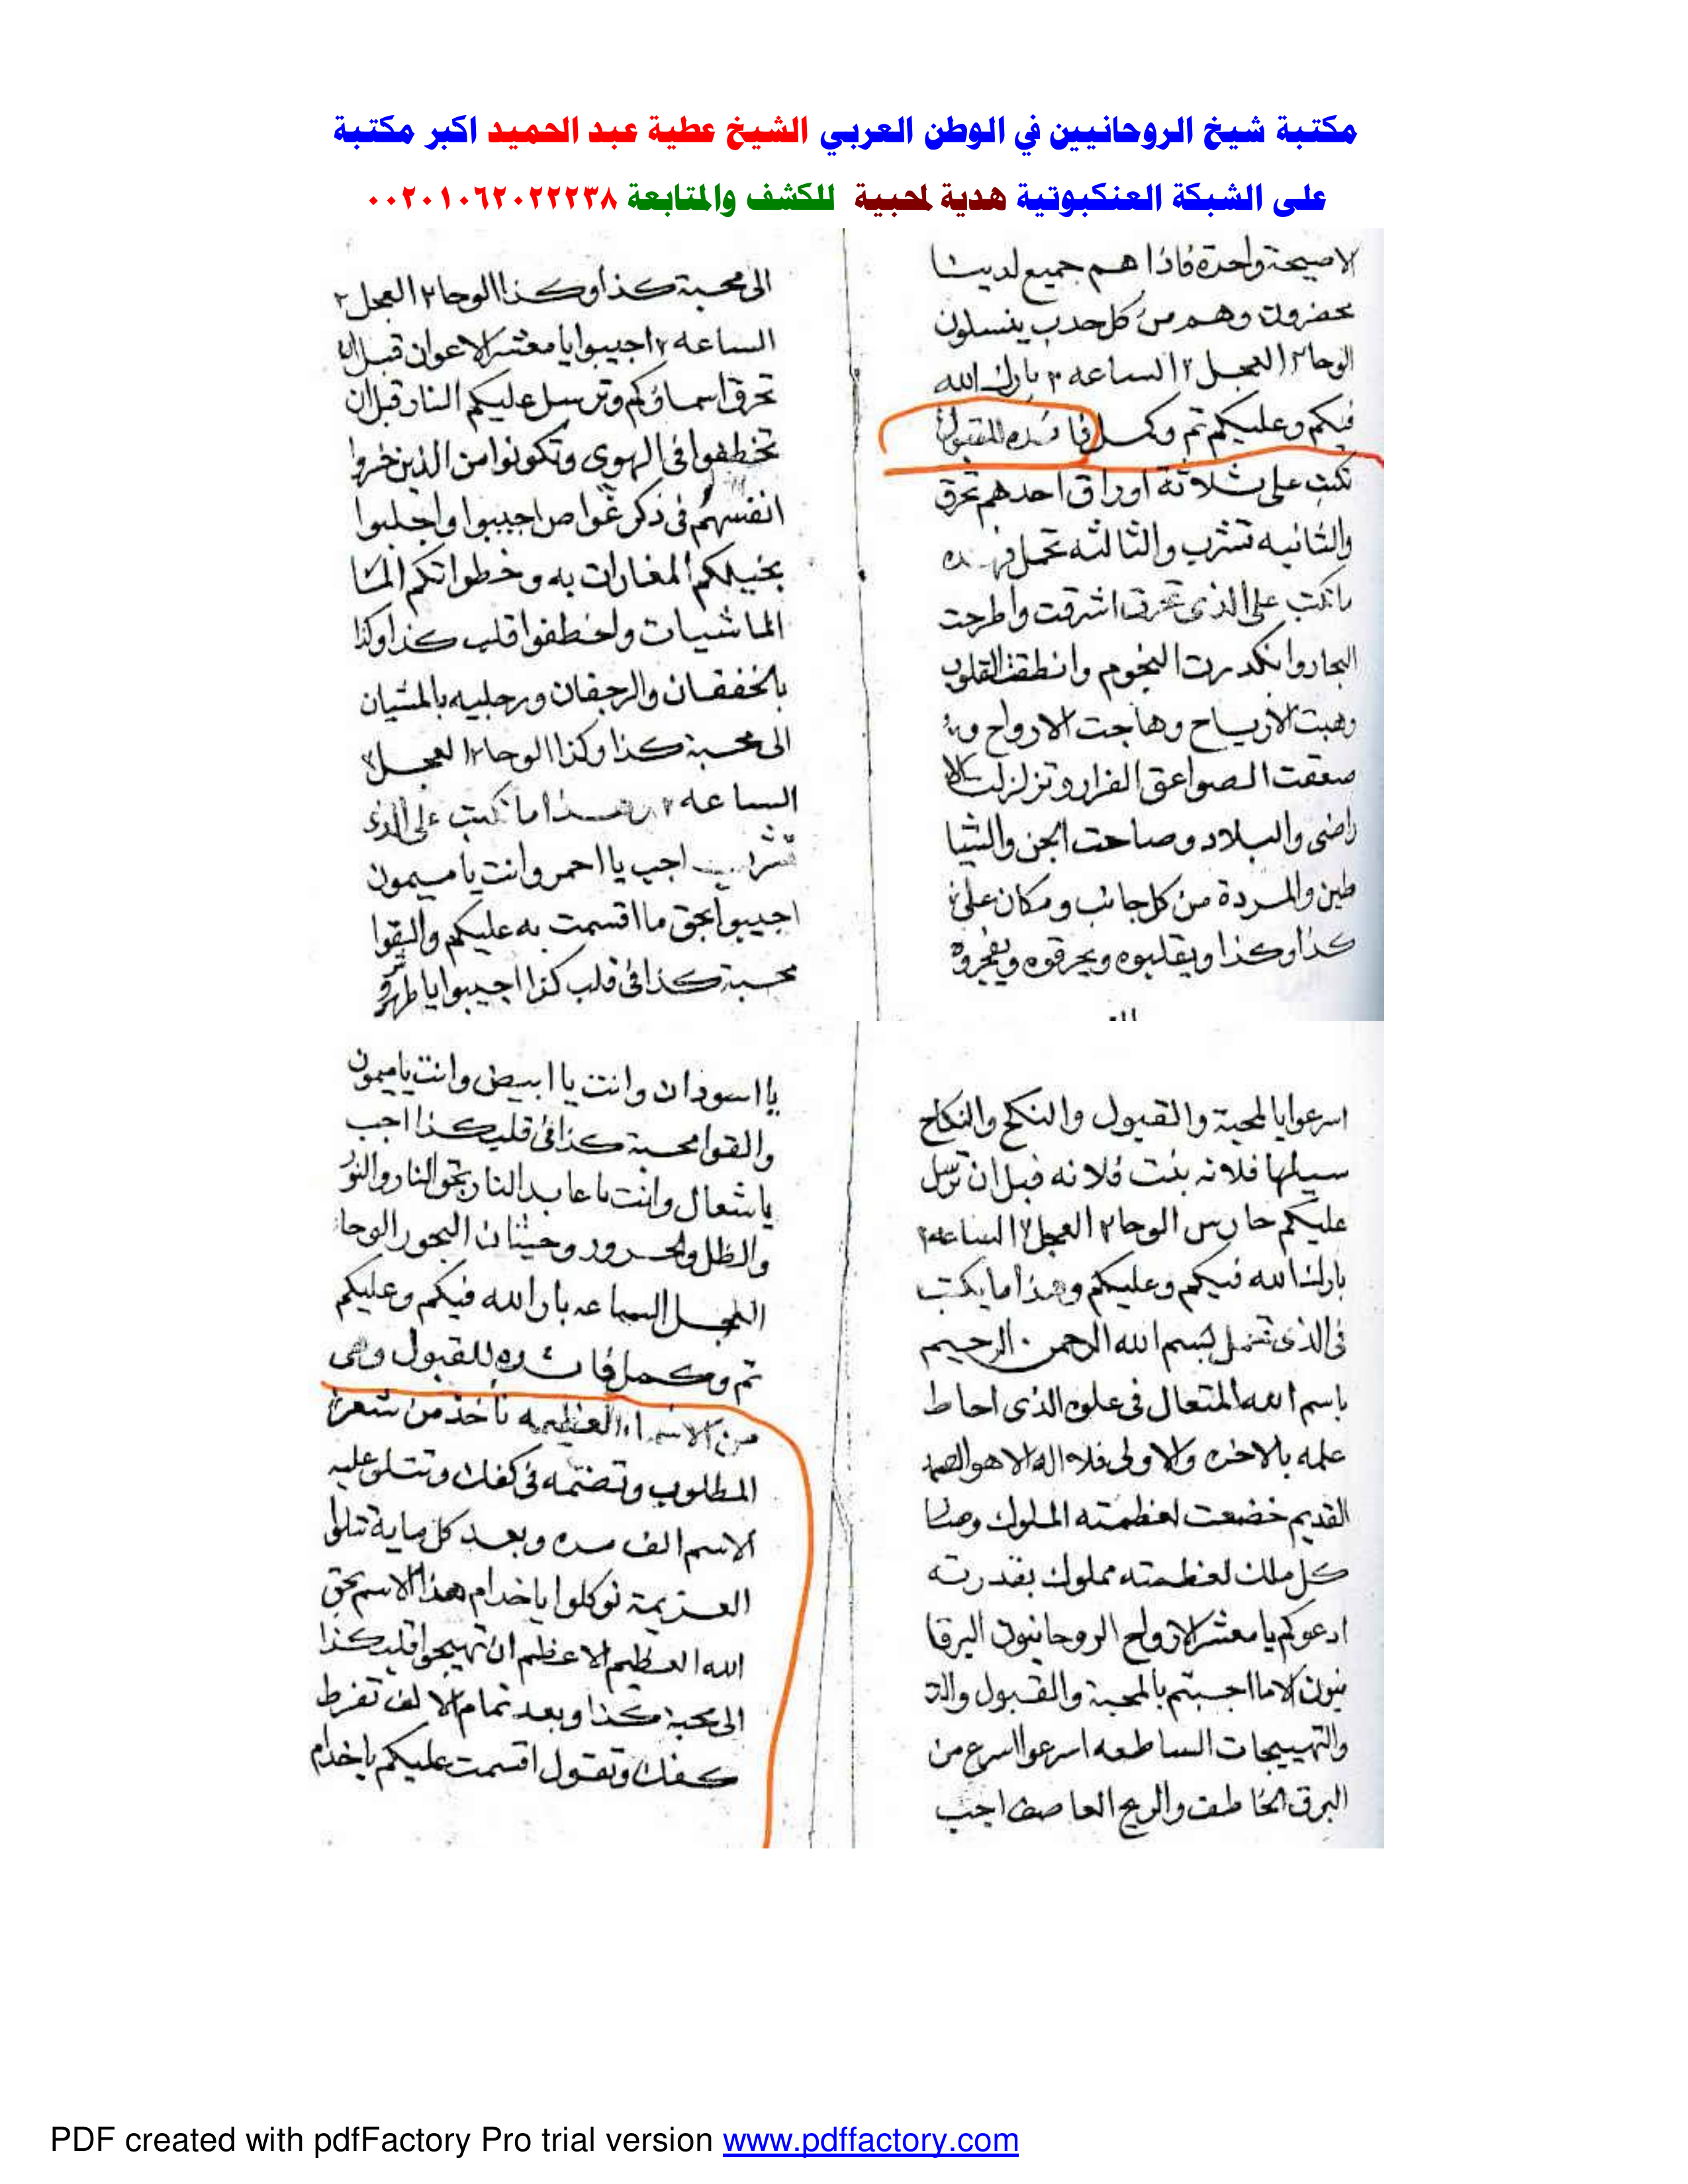 مكتبة شيخ الروحانيين في الوطن العربي الشيخ عطية عبد الحميد اكبر مكتبة
على الشبكة العنكبوتية هدية لمحبية للكشف والمتابعة ٠٠٢٠١٠٦٢٠٢٢٢٣٨
لاصيحة واحدة فاذا هم جميع لدينا
محضرون وهم من كل حدب ينسلون
الوحا٢ العجل٢ الساعه ٢ بارك الله
فيكم وعليكم تم وكمل فائده للقبول
تكتب على ثلاثة اوراق احدهم تحرق
والثانيه تشرب والثالثه تحمل
ماتكتب على الذى تحرق اشرقت واطرحت
البحار وانكدرت النجوم وانطقت القلوب
وهبت الارياح وهاجت الارواح و
صعقت الصواعق الفرار وتزلزلت الا
راضى والبلاد وصاحت الجن والشيا
طين والمردة من كل جانب ومكان على
كذا وكذا ويقلبوه ويحرقوه ويفجروه
الى محبة كذا وكذا الوحا٢ العجل٢
الساعه ٢ اجيبوا يا معشر الاعوان قبل ان
تحرق اسماؤكم وترسل عليكم النار قبل ان
تخطفوا فى الهوى وتكونوا من الذين خروا
انفسهم فى ذكر غواص اجيبوا واجلبوا
بخيلكم المغارات به وخطواتكم المشا
الماشيات واخطفوا قلب كذا وكذا
بالخفقان والرجفان ورجليه بالمشيان
الى محبة كذا وكذا الوحا٢ العجل٢
الساعه ٢ وهذا ما تكتب على الذى
تشرب اجب يا احمر وانت يا ميمون
اجيبوا بحق ما اقسمت به عليكم والقوا
محبة كذا فى قلب كذا اجيبوا يا
اسرعوا بالمحبة والقبول والنكح والنكاح
سيلها فلانه بنت فلانه قبل ان ترسل
عليكم حارس الوحا٢ العجل٢ الساعه٢
بارك الله فيكم وعليكم وهذا ما يكتب
فى الذى تحمل بسم الله الرحمن الرحيم
باسم الله المتعال فى علوه الذى احاط
علمه بالاخره والاولى فلا اله الا هو الصمد
القديم خضعت لعظمته الملوك وصا
كل ملك لعظمته مملوك بقدرته
ادعوكم يا معشر الارواح الروحانيون البرقا
نيون الا ما اجبتم بالمحبة والقبول والت
والتهييجات الساطعه اسرعوا اسرع من
البرق الخاطف والريح العاصف اجب
يا اسودان وانت يا ابيض وانت يا ميمون
والقوا محبة كذا فى قلب كذا اجب
يا شعال وانت يا عابد النار بحق النار والنور
والظل والحرور وحيتان البحور الوحا
العجل الساعه بارك الله فيكم وعليكم
تم وكمل فائده للقبول وهى
من الاسماء العظيمه تأخذ من شعر
المطلوب وتضمه فى كفك وتتلو عليه
الاسم الف مره وبعد كل ماية تتلوا
العزيمة توكلوا يا خدام هذا الاسم بحق
الله العظيم الاعظم ان تهيجوا قلب كذا
الى محبة كذا وبعد تمام الالف تفرط
كفك وتقول اقسمت عليكم يا خدام
PDF created with pdfFactory Pro trial version www.pdffactory.com